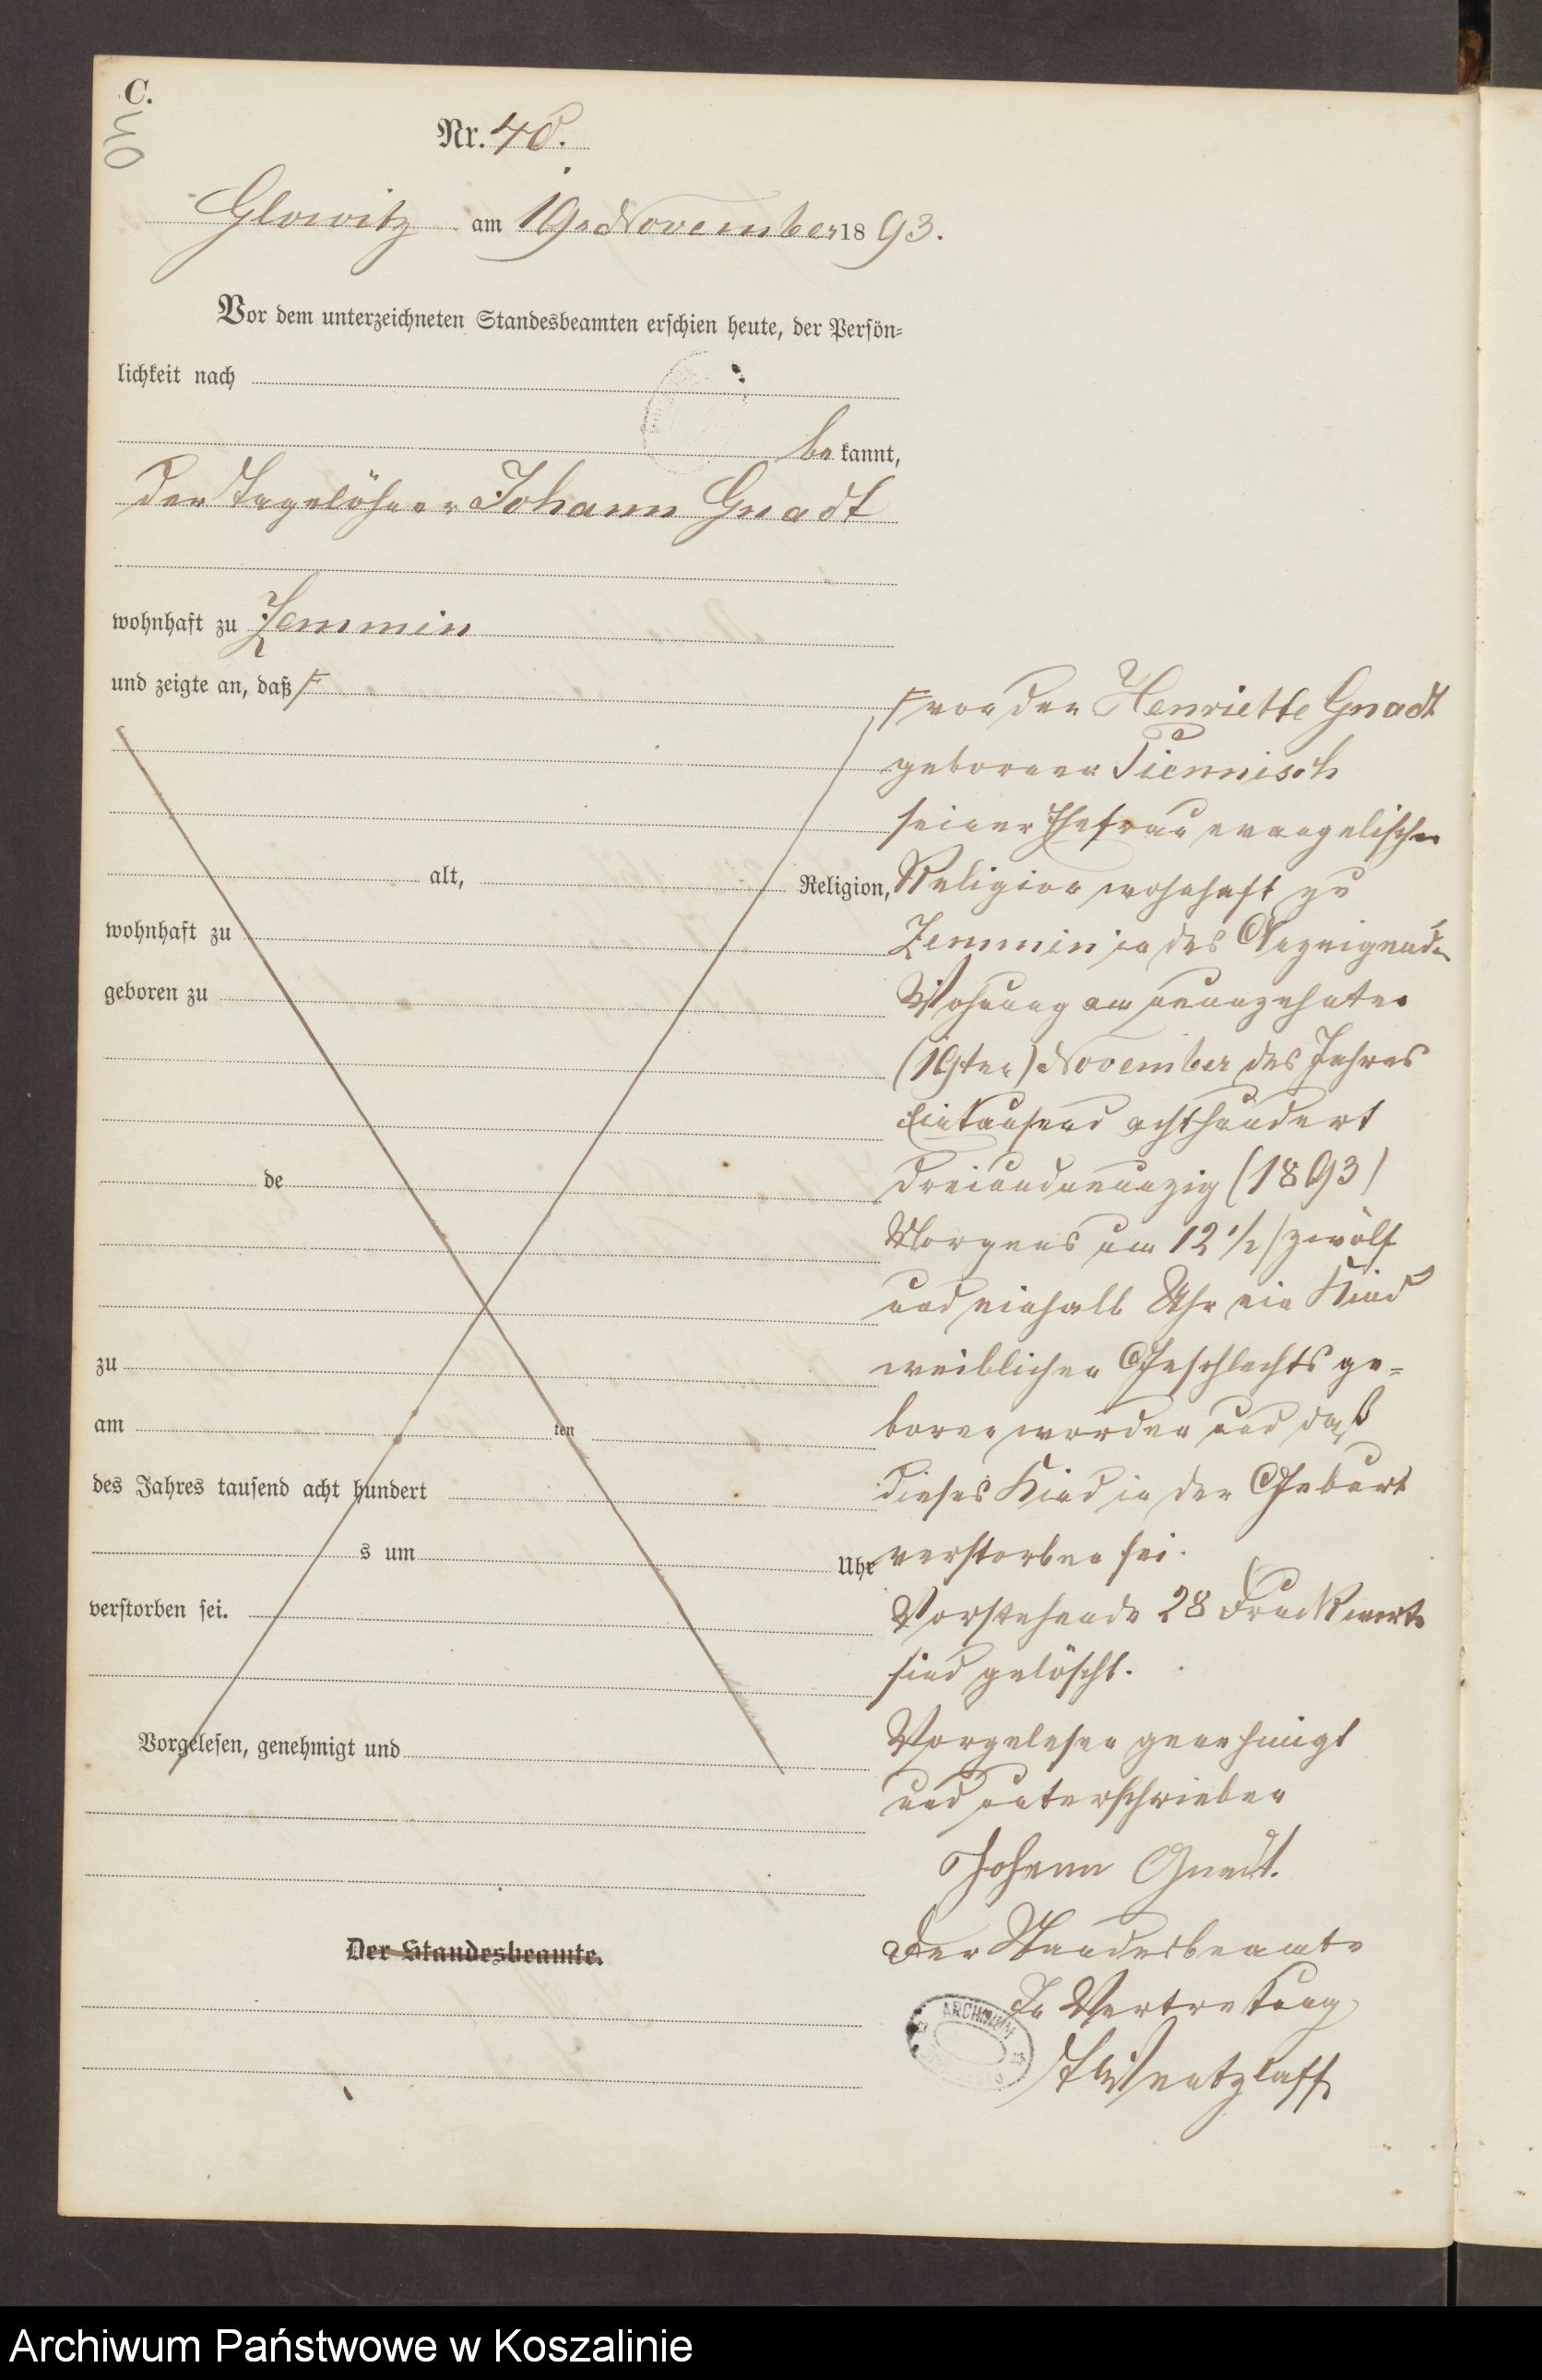 C.
40
Nr. 40.
Glowitz am 19. November 1893.
Vor dem unterzeichneten Standesbeamten erschien heute, der Persön-
lichkeit nach
be kannt,
der Tagelöhner Johann Gnadt
wohnhaft zu Zemmin
und zeigte an, daß F
F von der Henriette Gnadt
geborenen Piennisch
seiner Ehefrau evangelischer
alt, Religion, Religion wohnhaft zu
wohnhaft zu Zemmin in des Anzeigenden
geboren zu Wohnung am neunzehnten
(19ten) November des Jahres
Eintausend achthundert
de dreiundneunzig (1893)
Morgens um 12 1/2 (zwölf
und einhalb Uhr ein Kind
zu weiblichen Geschlechts ge-
am ten boren worden und daß
des Jahres tausend acht hundert dieses Kind in der Geburt
s um Uhr verstorben sei.
verstorben sei. Vorstehende 28 Druckworte
sind gelöscht.
Vorgelesen, genehmigt und Vorgelesen genehmigt
und unterschrieben
Johann Gnadt.
Der Standesbeamte. Der Standesbeamte
In Vertretung
Wentzlaff
ARCHIWUM
Archiwum Państwowe w Koszalinie